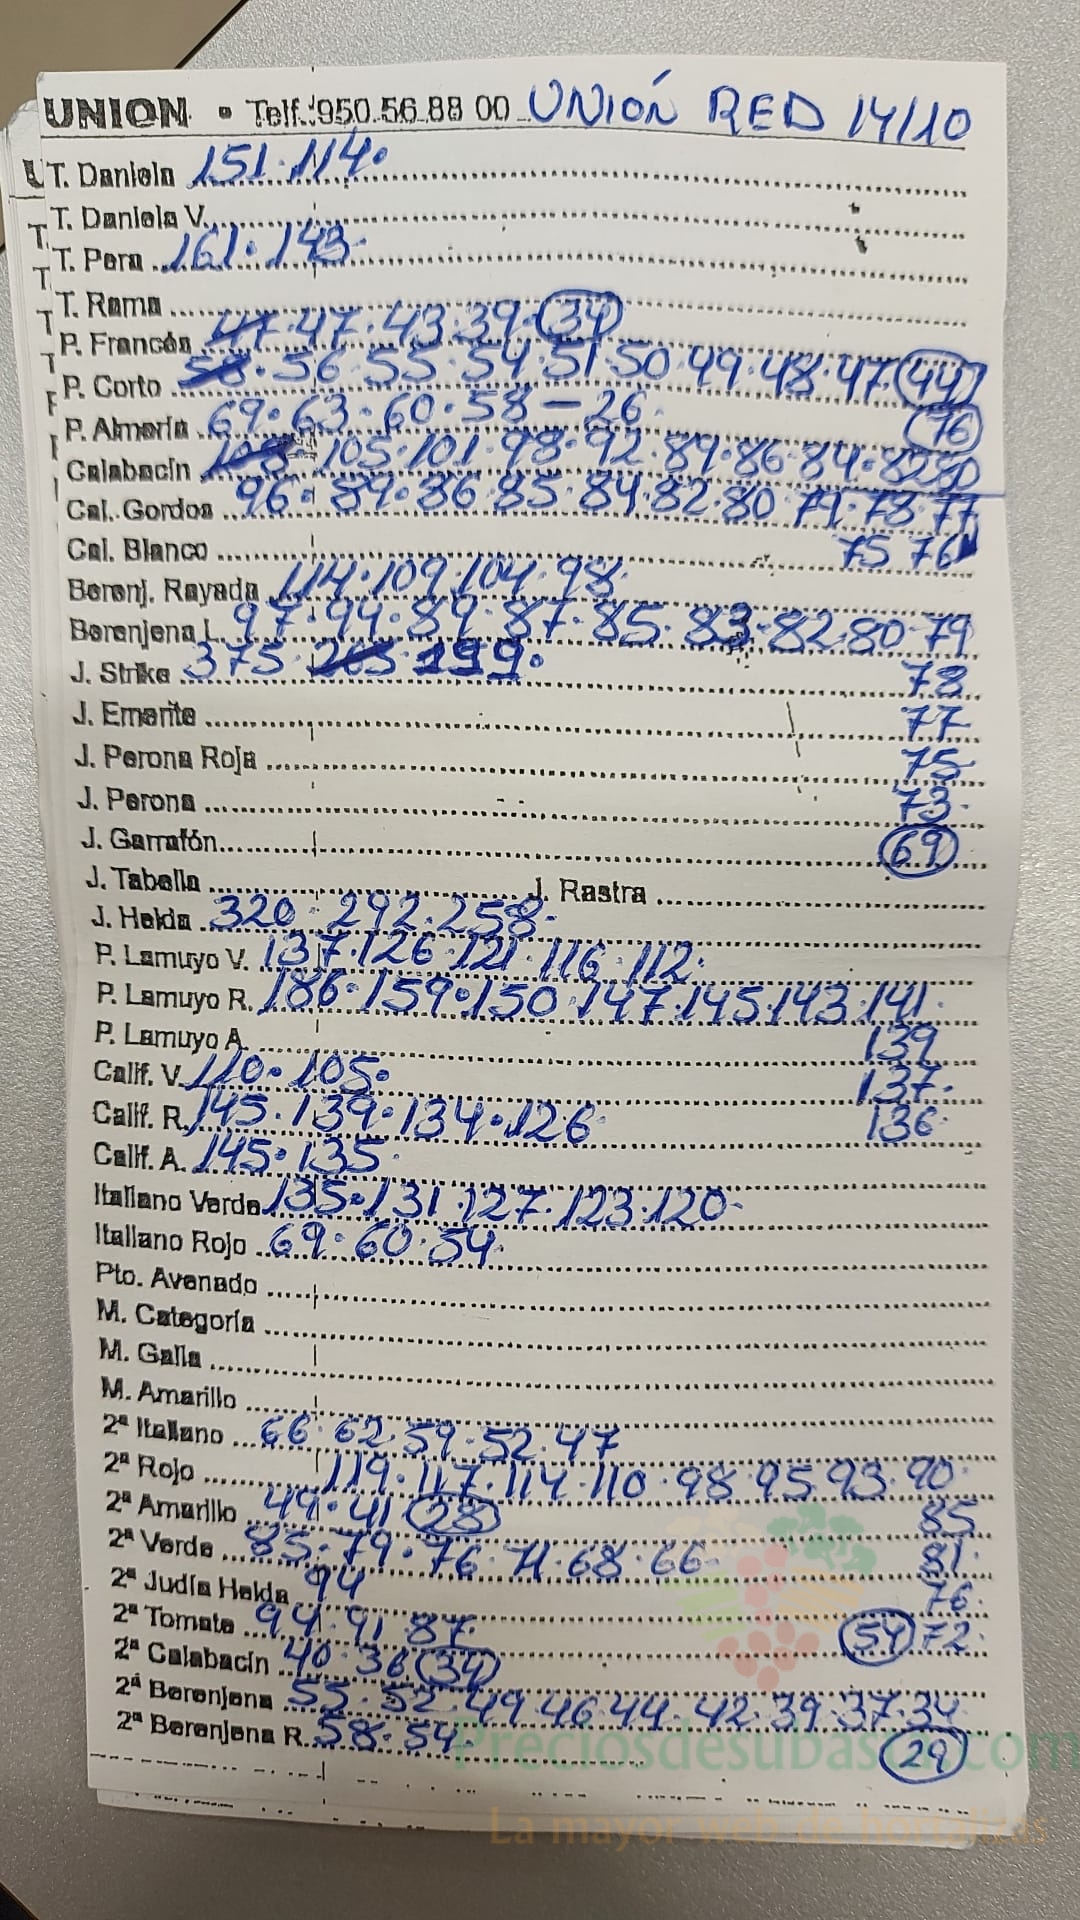 UNION • Telf.: 950.56.88 00 UNIÓN RED 14/10
T. Daniela 151.114.
T. Daniela V.
T. Pera 161.143.
T. Rama
P. Francés 47.47.43.39.34
P. Corto 58.56.55.54.51.50.49.48.47.44
P. Almería 69.63.60.58-26. 76
Calabacín 108.105.101.98.92.89.86.84.82 80
Cal. Gordos 96.89.86.85.84.82.80 79.78.77
Cal. Blanco 75 76
Berenj. Rayada 114.109.104.98.
Berenjena L. 97.94.89.87.85.83.82.80.79
J. Strike 375.205.199. 78
J. Emerite 77
J. Perona Roja 75
J. Perona 73.
J. Garrafón 69
J. Tabella J. Rastra
J. Helda 320.292.258.
P. Lamuyo V. 137.126.121.116.112.
P. Lamuyo R. 186.159.150.147.145.143.141.
P. Lamuyo A. 139
Calif. V. 110.105. 137.
Calif. R. 145.139.134.126. 136
Calif. A. 145.135.
Italiano Verde 135.131.127.123.120-
Italiano Rojo 69.60.54.
Pto. Avenado
M. Categoría
M. Galia
M. Amarillo
2ª Italiano 66.62.59.52.47
2ª Rojo 119.117.114.110.98.95.93.90.
2ª Amarillo 49.41 28 85
2ª Verde 85.79.76.71.68.66- 81.
2ª Judía Helda 94 76.
2ª Tomate 94.91.87. 54 72.
2ª Calabacín 40.36 34
2ª Berenjena 55.52.49.46.44.42.39.37.34
2ª Berenjena R. 58.54. 29
Preciosdesubasta.com
La mayor web de hortalizas